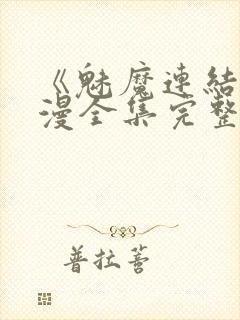 《魅魔連結
漫全集完整
普拉薈